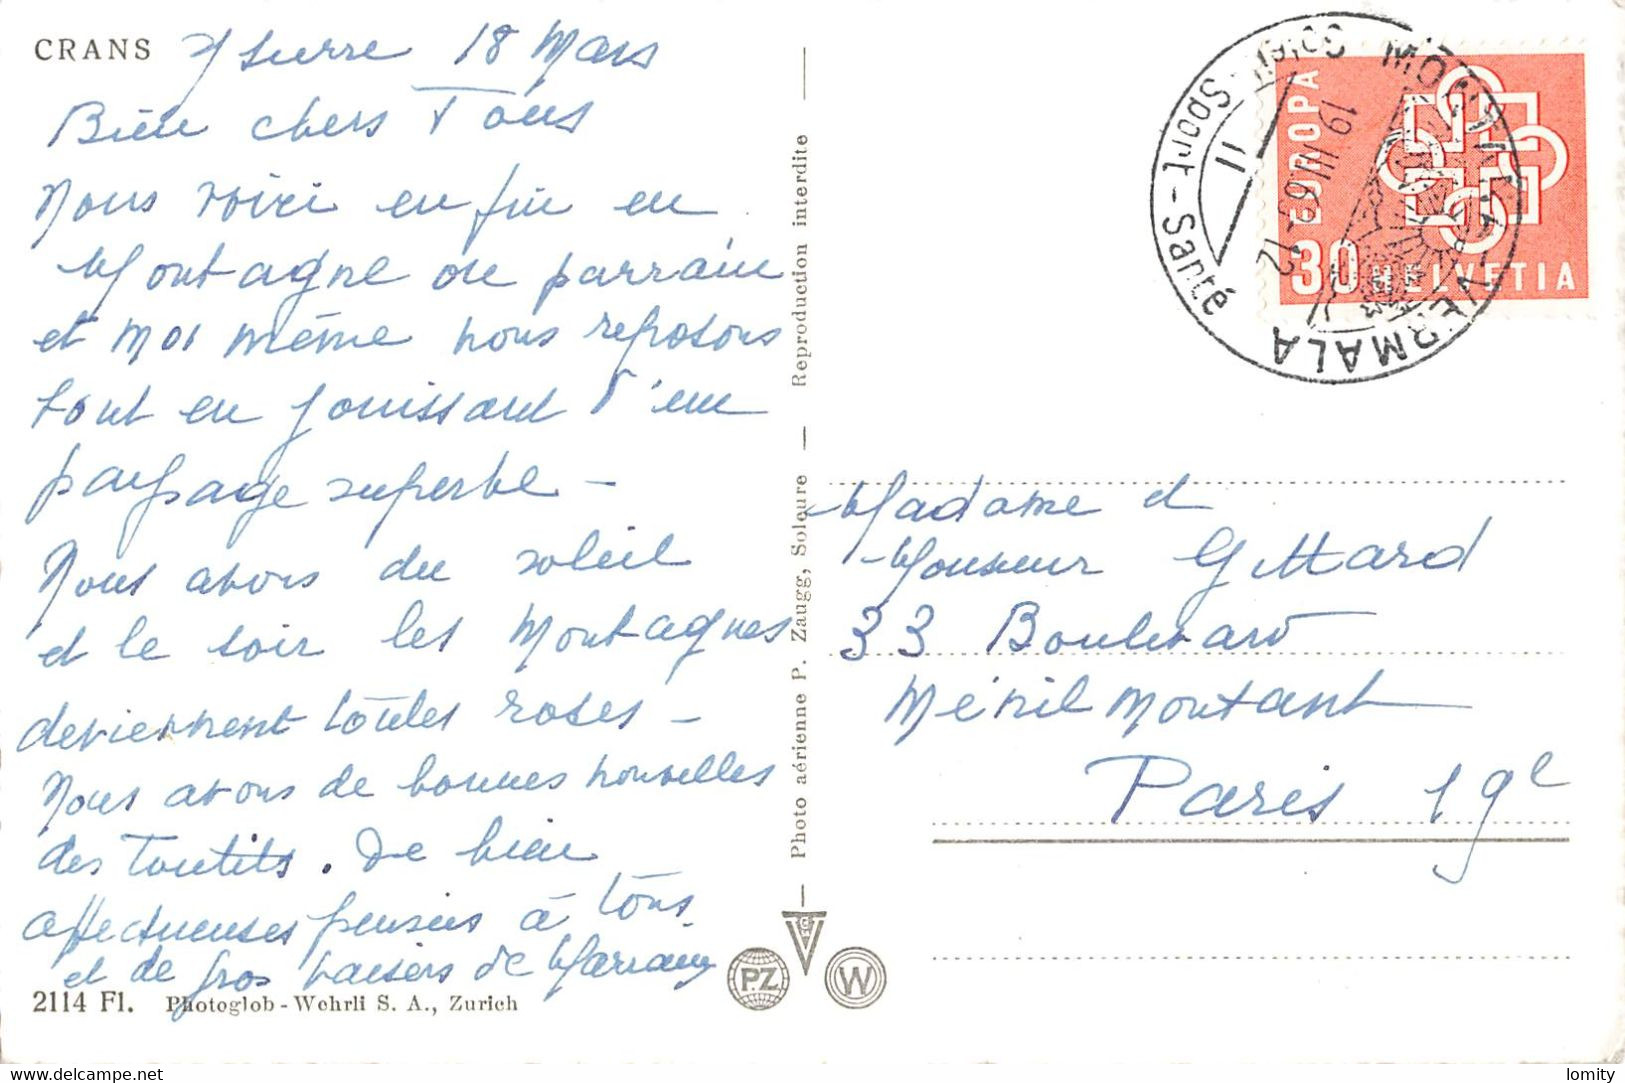 CRANS s/ Sierre 18 Mars
Bien chers Tous
Nous voici enfin en
Montagne où parrain
et moi même nous reposons
tout en jouissant d'un
paysage superbe -
Nous avons du soleil
et le soir les Montagnes
deviennent toutes roses -
Nous avons de bonnes nouvelles
des Toutits. De bien
affectueuses pensées à tous
et de gros baisers de Marraine
2114 Fl. Photoglob - Wehrli S. A., Zurich
Photo aérienne P. Zaugg, Soleure — Reproduction interdite
PZ
W
MONTANA-VERMALA
Soleil - Sport - Santé
19 III 6 -12
11
EUROPA
30 HELVETIA
Madame et
Monsieur Gittard
33 Boulevard
Ménilmontant
Paris 19e
https://www.delcampe.net
lomity